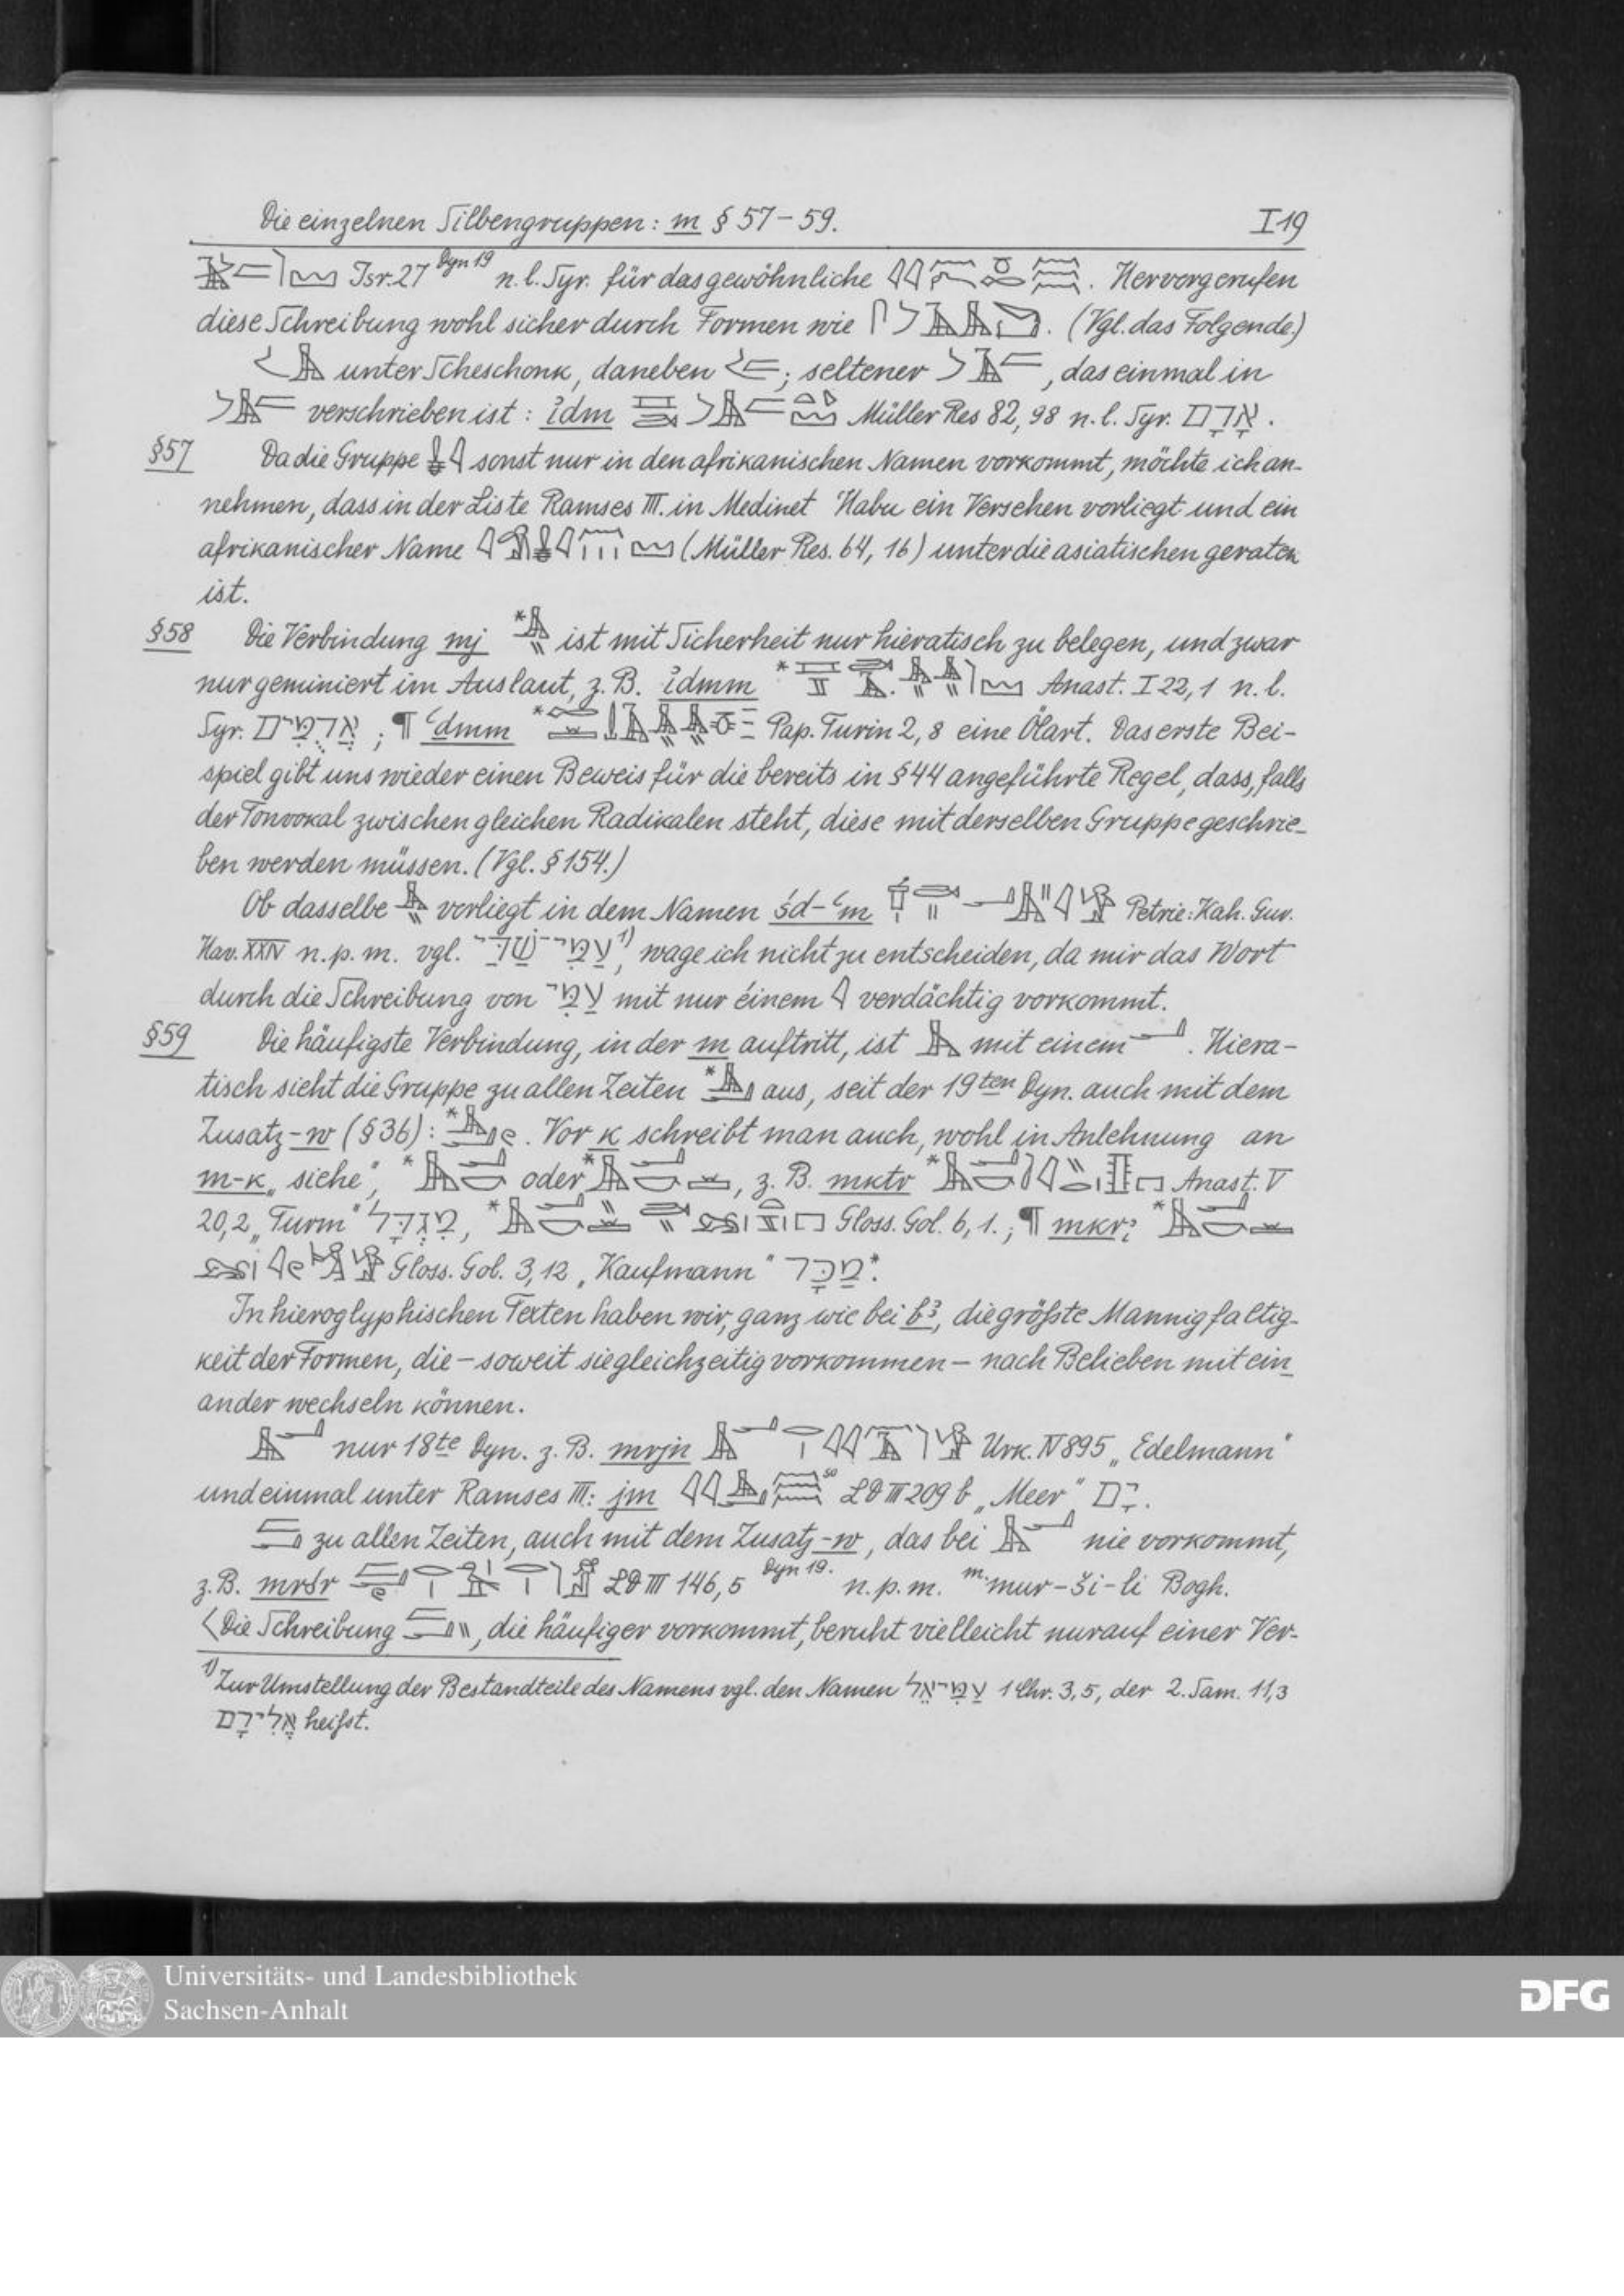 Die einzelnen Silbengruppen: m § 57 – 59. I 19
Isr. 27 Dyn 19 n. l. Syr. für das gewöhnliche . Hervorgerufen
diese Schreibung wohl sicher durch Formen wie . (Vgl. das Folgende.)
unter Scheschonk, daneben ; seltener , das einmal in
verschrieben ist: ꜣdm Müller Res 82, 98 n. l. Syr. אָדָם.
§57 Da die Gruppe sonst nur in den afrikanischen Namen vorkommt, möchte ich an-
nehmen, dass in der Liste Ramses III. in Medinet Habu ein Versehen vorliegt und ein
afrikanischer Name (Müller Res. 64, 16) unter die asiatischen geraten
ist.
§58 Die Verbindung mj * ist mit Sicherheit nur hieratisch zu belegen, und zwar
nur geminiert im Auslaut, z. B. ꜣdmm * Anast. I 22, 1 n. l.
Syr. ; ¶ ꜥdmm * Pap. Turin 2, 8 eine Ölart. Das erste Bei-
spiel gibt uns wieder einen Beweis für die bereits in § 44 angeführte Regel, dass, falls
der Tonvokal zwischen gleichen Radikalen steht, diese mit derselben Gruppe geschrie-
ben werden müssen. (Vgl. § 154.)
Ob dasselbe vorliegt in dem Namen śd-ꜥm Petrie: Kah. Gur.
Haw. XXIV n. p. m. vgl. 1), wage ich nicht zu entscheiden, da mir das Wort
durch die Schreibung von עַמִּי mit nur éinem verdächtig vorkommt.
§59 Die häufigste Verbindung, in der m auftritt, ist mit einem . Hiera-
tisch sieht die Gruppe zu allen Zeiten * aus, seit der 19ten Dyn. auch mit dem
Zusatz -w (§ 36): * . Vor k schreibt man auch, wohl in Anlehnung an
m-k „siehe", * oder * , z. B. mktr * Anast. V
20, 2 „Turm" מִגְדָּל, * Gloss. Gol. 6, 1.; ¶ mkrꜣ *
Gloss. Gol. 3, 12 „Kaufmann" מַכָּר*.
In hieroglyphischen Texten haben wir, ganz wie bei bꜣ, die größte Mannigfaltig-
keit der Formen, die – soweit sie gleichzeitig vorkommen – nach Belieben mit ein-
ander wechseln können.
nur 18te Dyn. z. B. mrjn Urk. IV 895 „Edelmann"
und einmal unter Ramses III.: jm so LD III 209 b „Meer" יָם.
zu allen Zeiten, auch mit dem Zusatz -w, das bei nie vorkommt,
z. B. LD III 146, 5 Dyn 19. n. p. m. m. mur-ši-li Bogh.
<Die Schreibung , die häufiger vorkommt, beruht vielleicht nur auf einer Ver-
1) Zur Umstellung der Bestandteile des Namens vgl. den Namen עַמִּיאֵל 1 Chr. 3, 5, der 2. Sam. 11, 3
heißt.
Universitäts- und Landesbibliothek
Sachsen-Anhalt
DFG